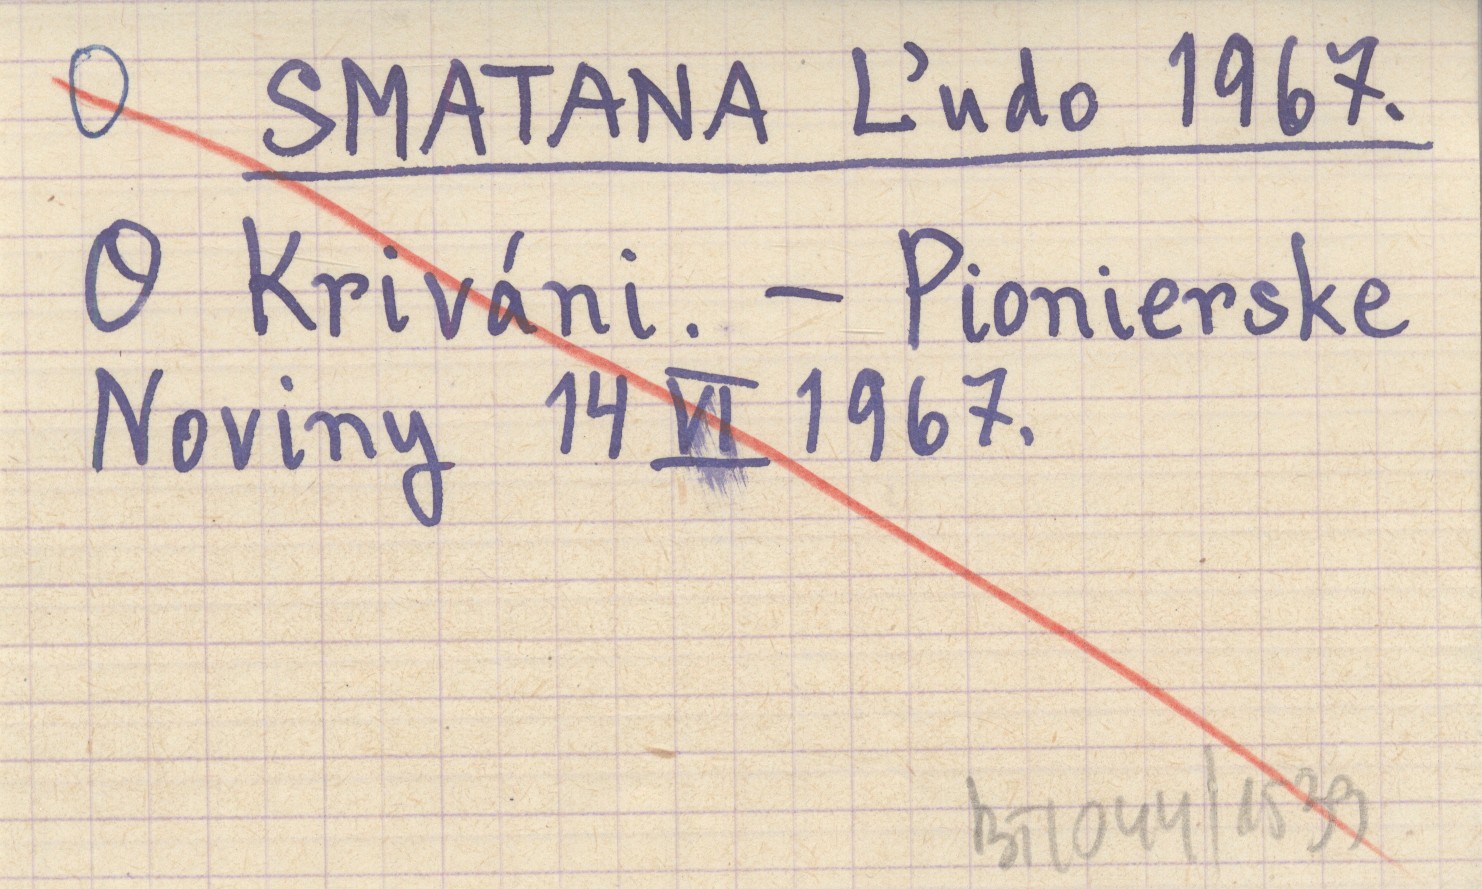 O SMATANA Ľudo 1967.
O Kriváni. – Pionierske
Noviny 14 VI 1967.